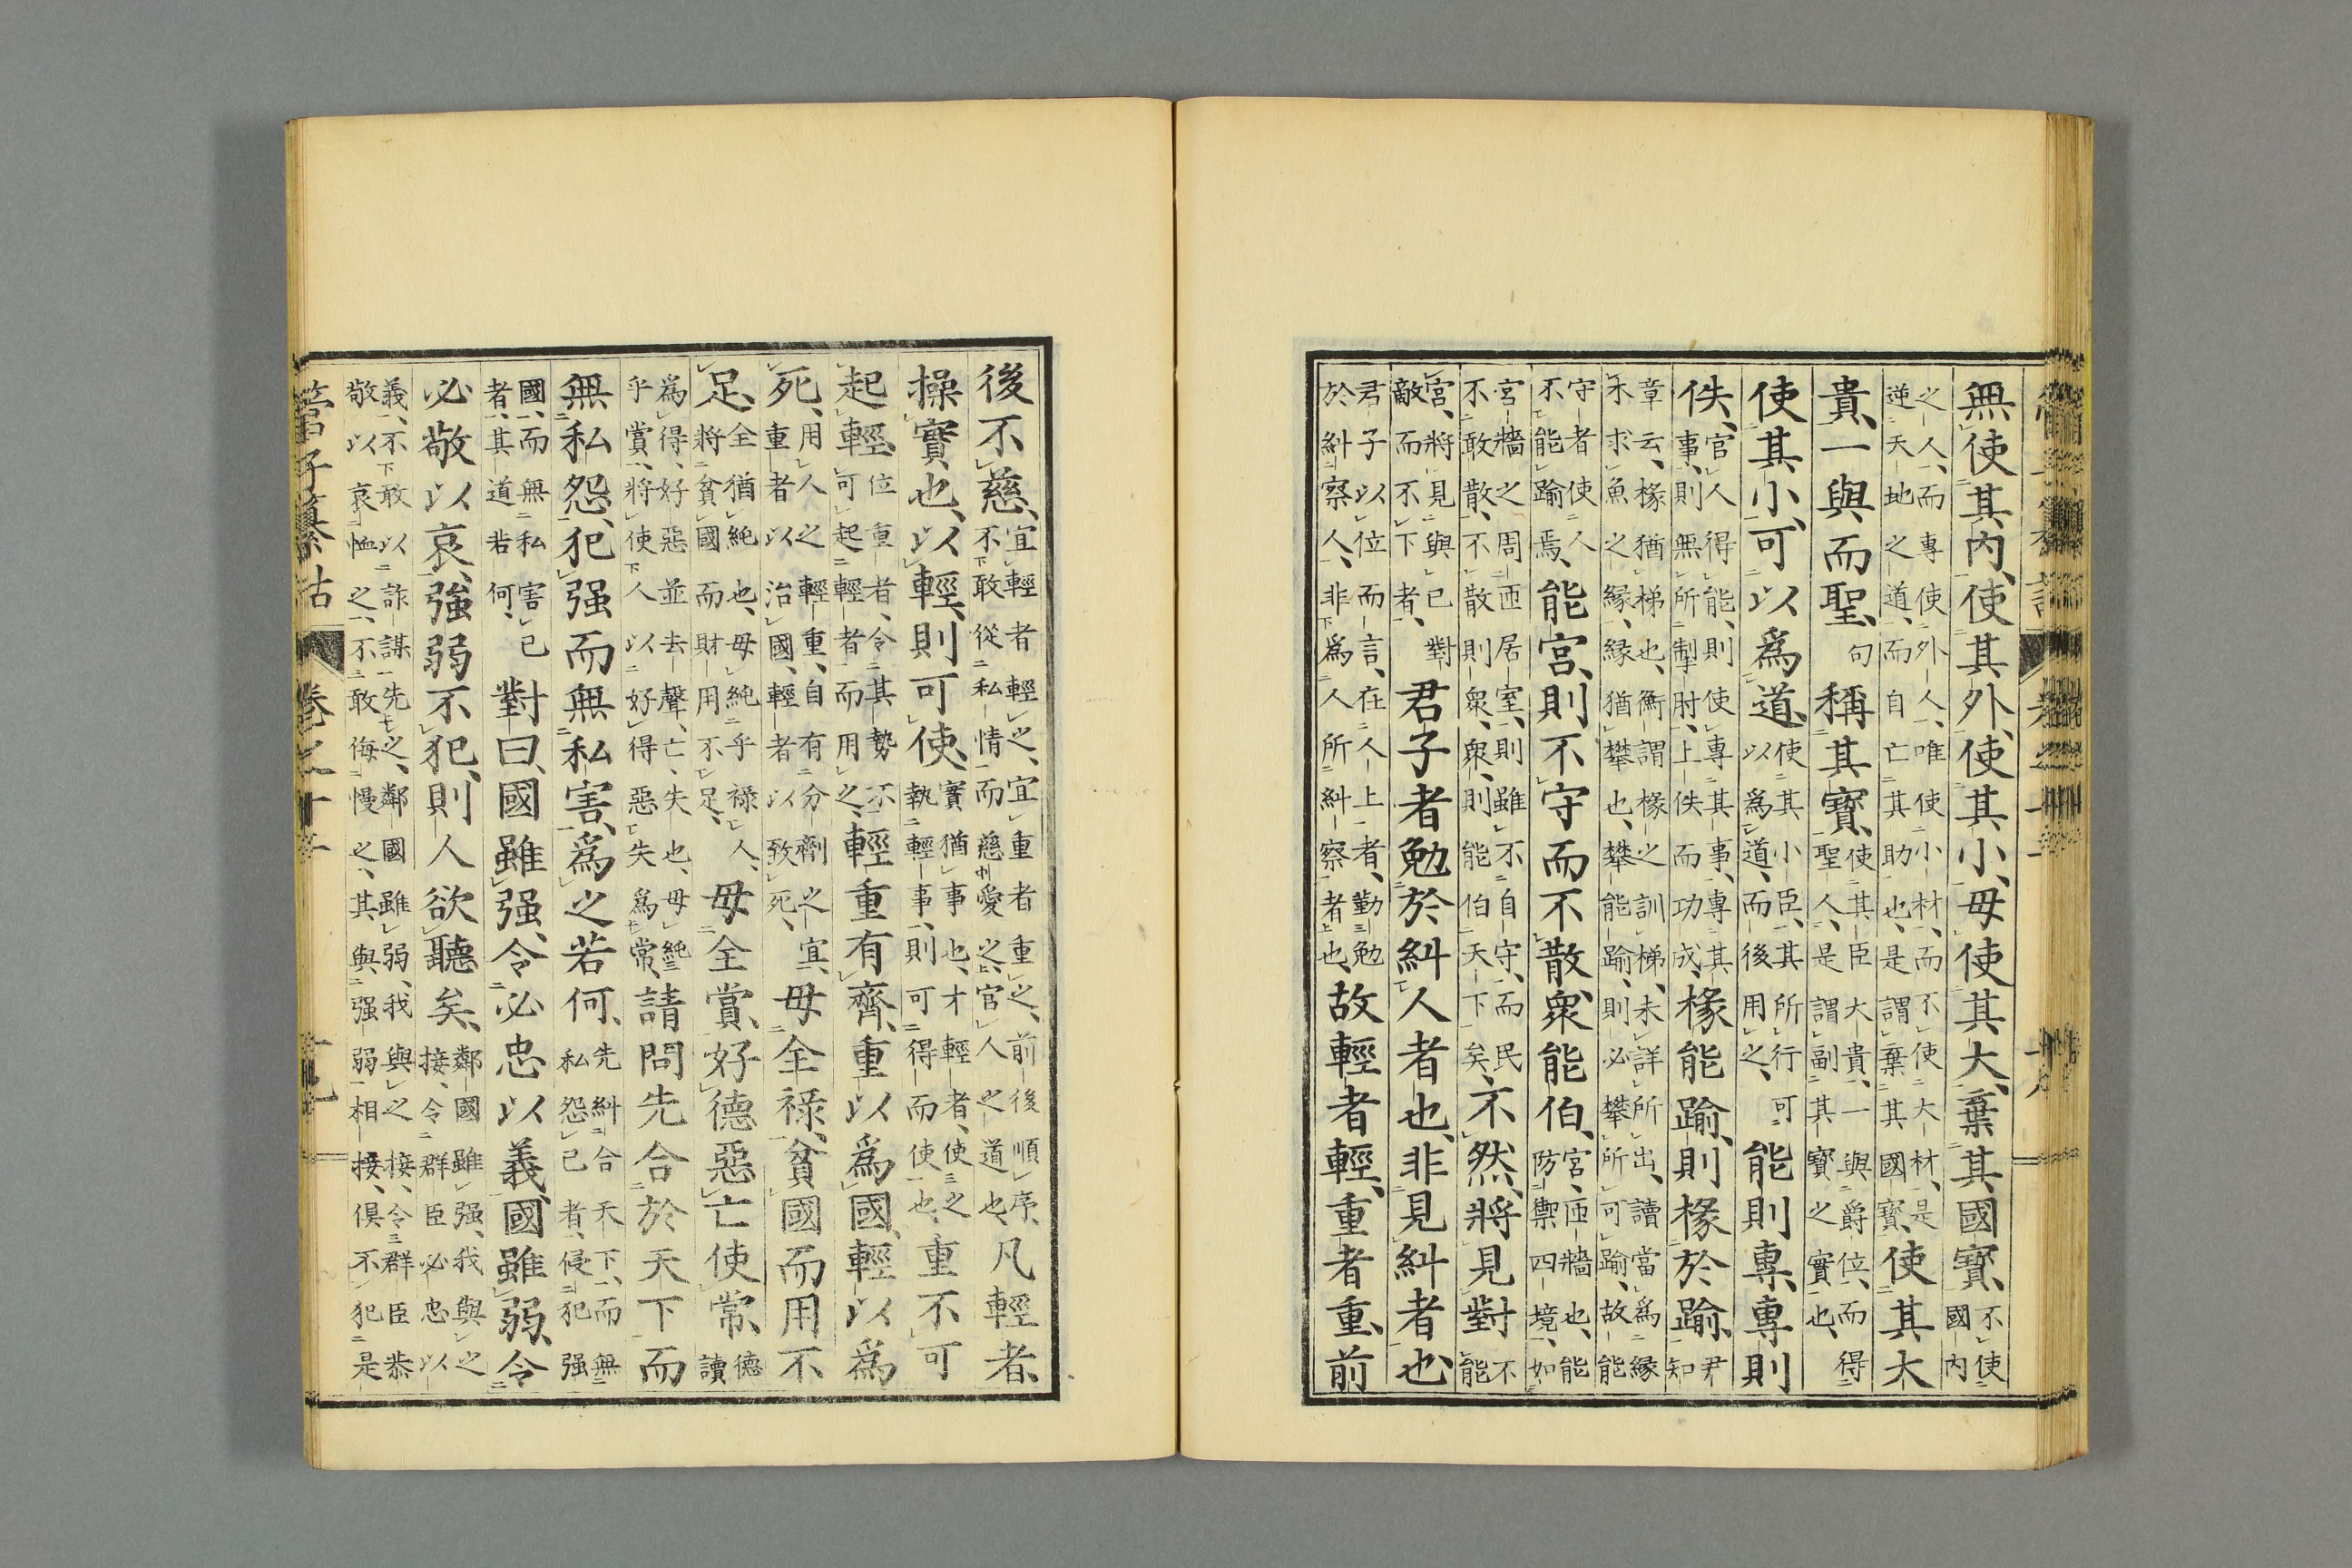 無使其内、使其外、使其小、毋使其大、棄其國寶、不使國内
之人、而專使外人、唯使小材、而不使大材、是
逆天地之道、而自亡其助也、是謂棄其國寶、使其大
貴、一與而聖、句稱其寶、使其臣大貴、一與爵位、而得
聖人、是謂副其寶之實也、
使其小、可以爲道、使其小臣、其所行可
以爲道、而後用之、能則專、專則
佚、官人得能、則使專其事、專其
事、則無所掣肘、上佚而功成、椽能踰、則椽於踰、尹知
章云、椽猶梯也、衡謂椽之訓梯、未詳所出、讀當爲緣
木求魚之緣、緣猶攀也、攀能踰、則必攀所可踰、故能
守者使人
不能踰焉、能宮、則不守而不散、衆能伯、宮、匝牆也、能
防禦四境、如
宮牆之周匝居室、則雖不自守、而民
不敢散、不散則衆、衆則能伯天下矣、不然、將見對不能
宮、將見與己對
敵而不下者、君子者勉於糾人者也、非見糾者也、
君子以位而言、在人上者、勤勉
於糾察人、非爲人所糾察者也、故輕者輕、重者重、前
後不慈、宜輕者輕之、宜重者重之、前後順序、
不敢從私情而慈愛之、官人之道也、凡輕者、
操寶也、以輕、則可使、實猶事也、才輕者、使之
執輕事、則可得而使也、重不可
起輕、位重者、令其勢不
可起輕者而用之、輕重有齊、重以爲國、輕以爲
死、用人之輕重、自有分劑之宜、
重者以治國、輕者以致死、毋全祿、貧國而用不
足、全猶純也、毋純乎祿人、
將貧國而財用不足、毋全賞、好德惡亡使常、德讀
爲得、好惡並去聲、亡、失也、毋純
乎賞、將使人以好得惡失爲常、請問先合於天下而
無私怨、犯强而無私害、爲之若何、先糾合天下、而無
私怨己者、侵犯强
國、而無私害己
者、其道若何、對曰、國雖强、令必忠以義、國雖弱、令
必敬以哀、強弱不犯、則人欲聽矣、鄰國雖强、我與之
接、令群臣必忠以
義、不敢以詐謀先之、鄰國雖弱、我與之接、令群臣恭
敬以哀恤之、不敢侮慢之、其與强弱相接、俱不犯是
管子纂詁 卷之十二 十九